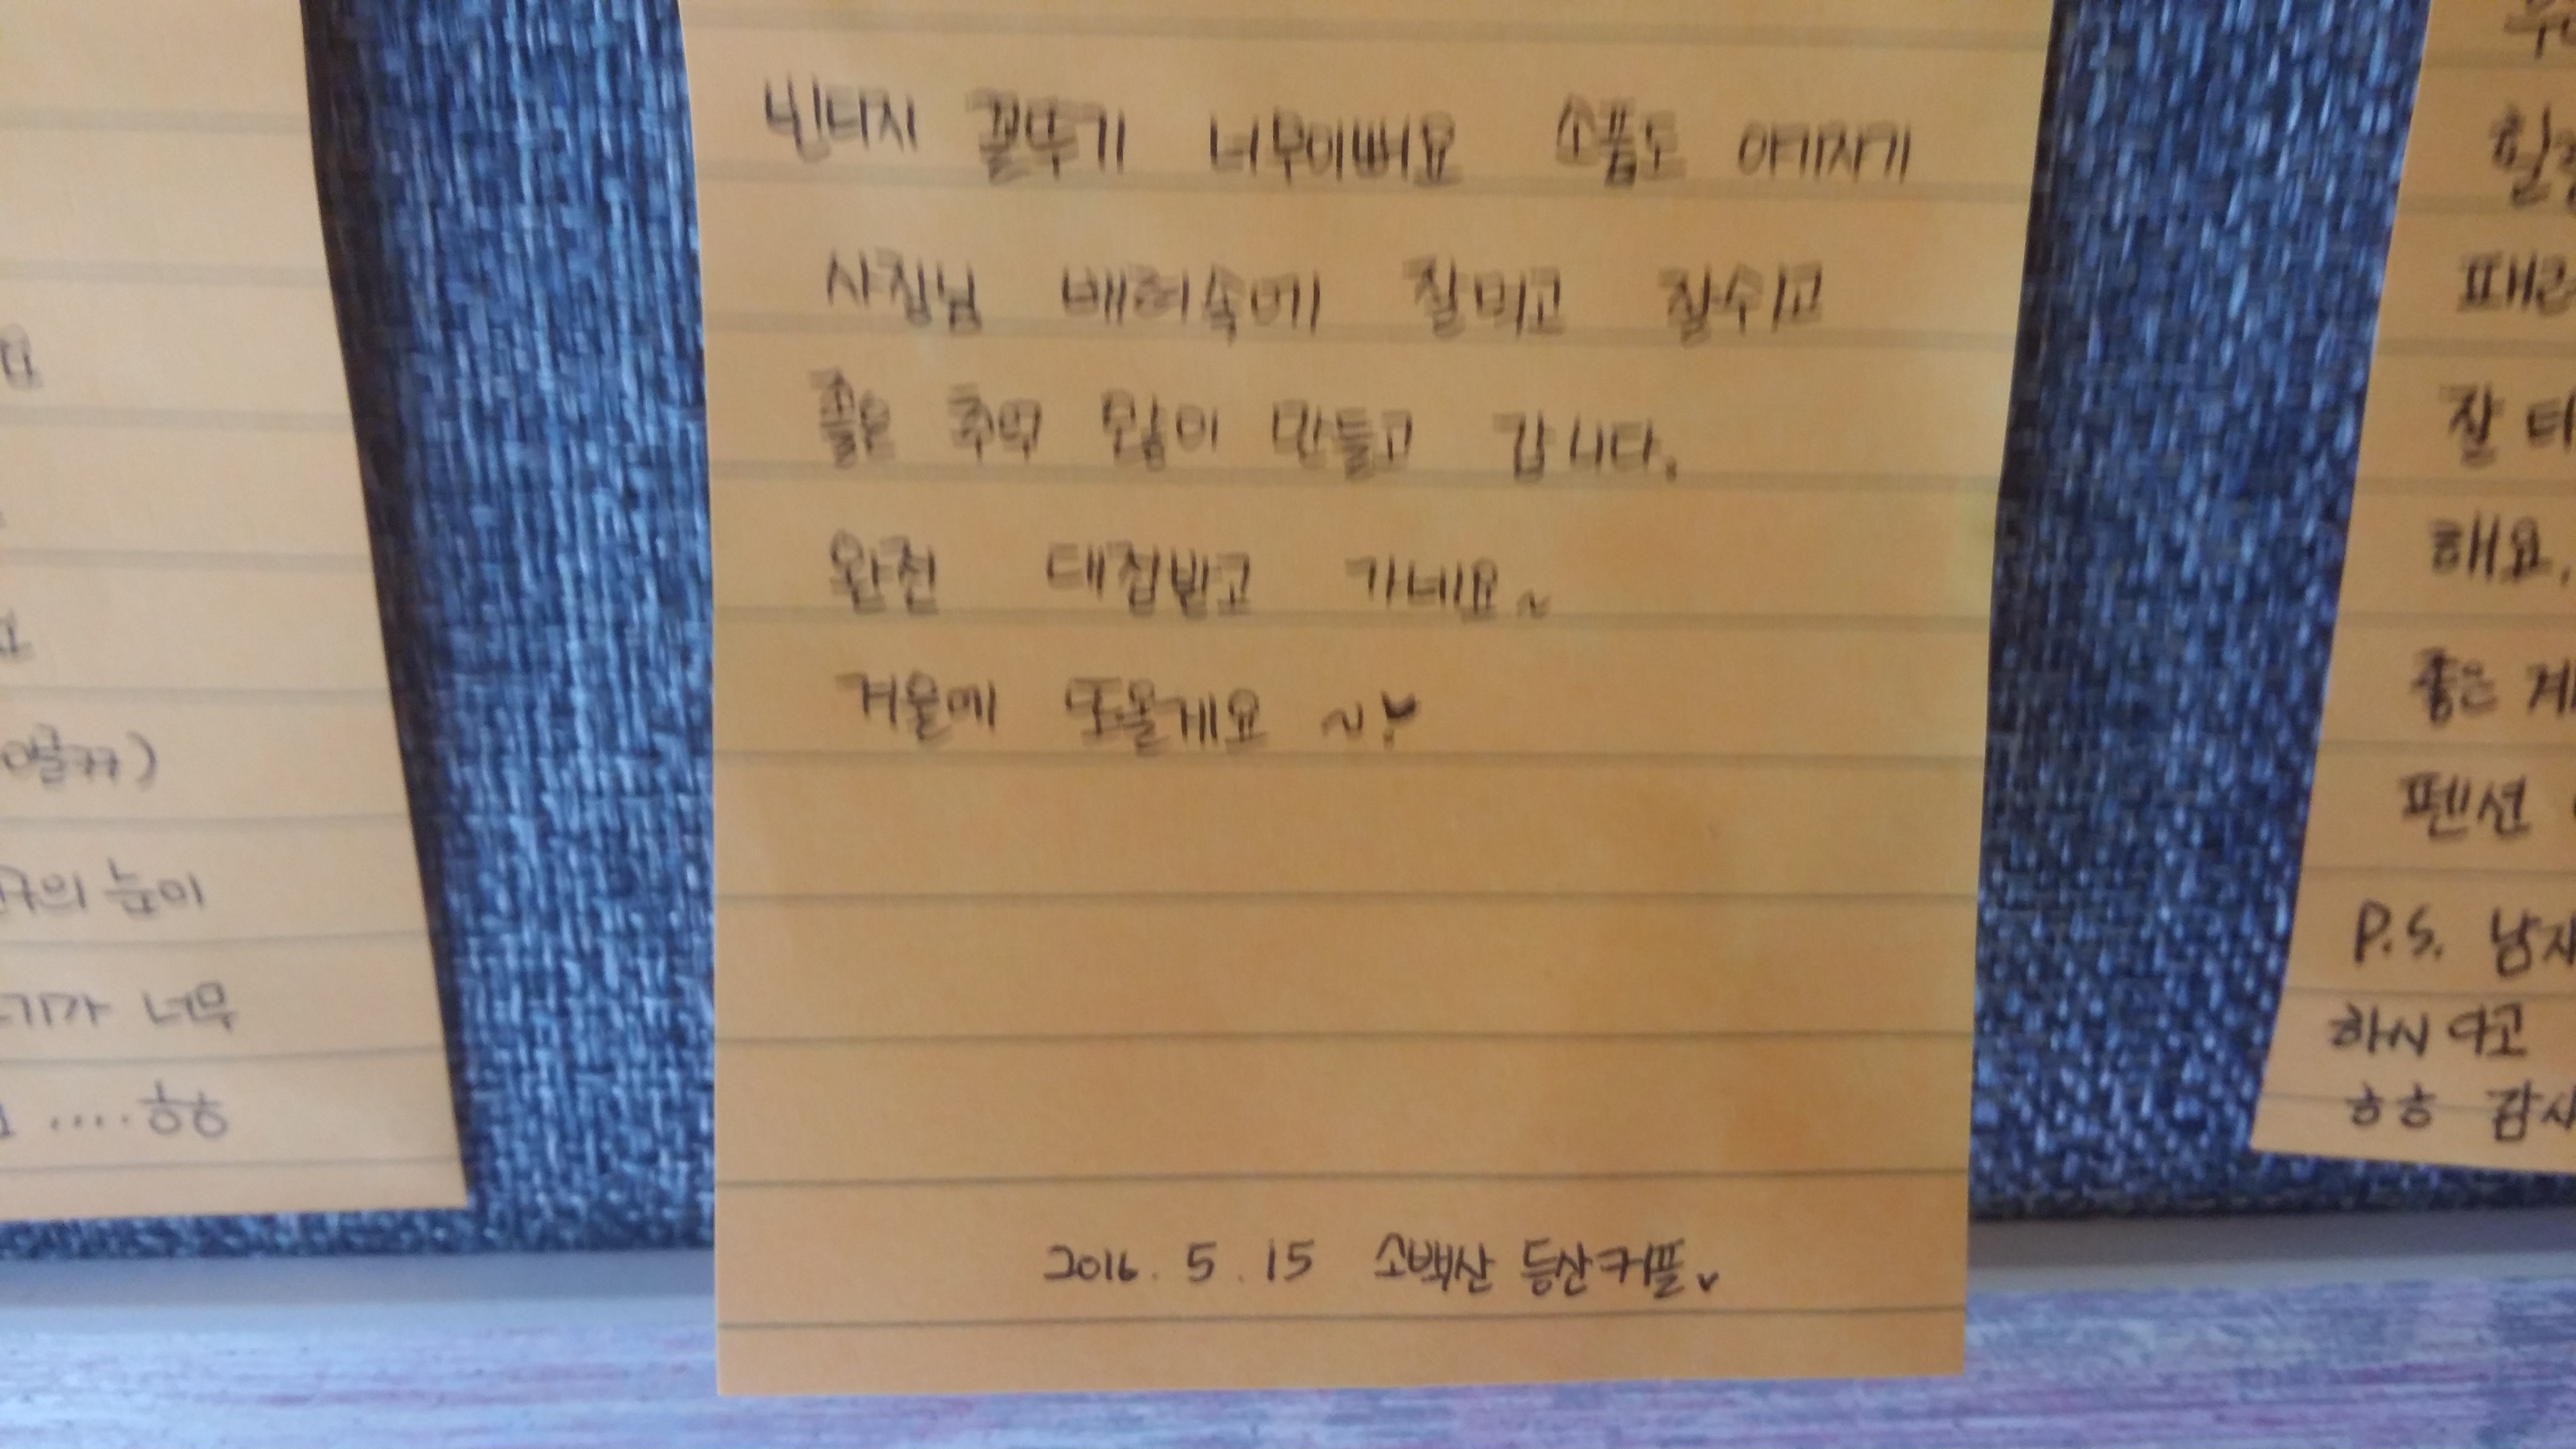 빈티지 꼴뚜기 너무이뻐요 소품도 아기자기
사장님 배려속에 잘먹고 잘쉬고
좋은 추억 많이 만들고 갑니다.
완전 대접받고 가네요~
겨울에 또올게요 ~♥
2016. 5. 15 소백산 등산커플♥
눈이
너무
....ㅎㅎ
잘
해요.
좋은
펜션
P.S.
하시다고
ㅎㅎ